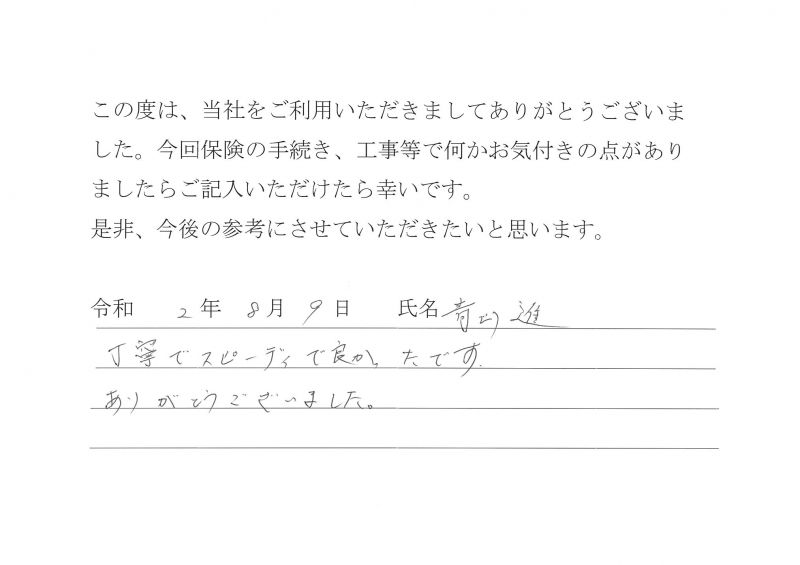 この度は、当社をご利用いただきましてありがとうございま
した。今回保険の手続き、工事等で何かお気付きの点があり
ましたらご記入いただけたら幸いです。
是非、今後の参考にさせていただきたいと思います。
令和 2年 8月 9日 氏名 青山 進
丁寧でスピーディで良かったです.
ありがとうございました。